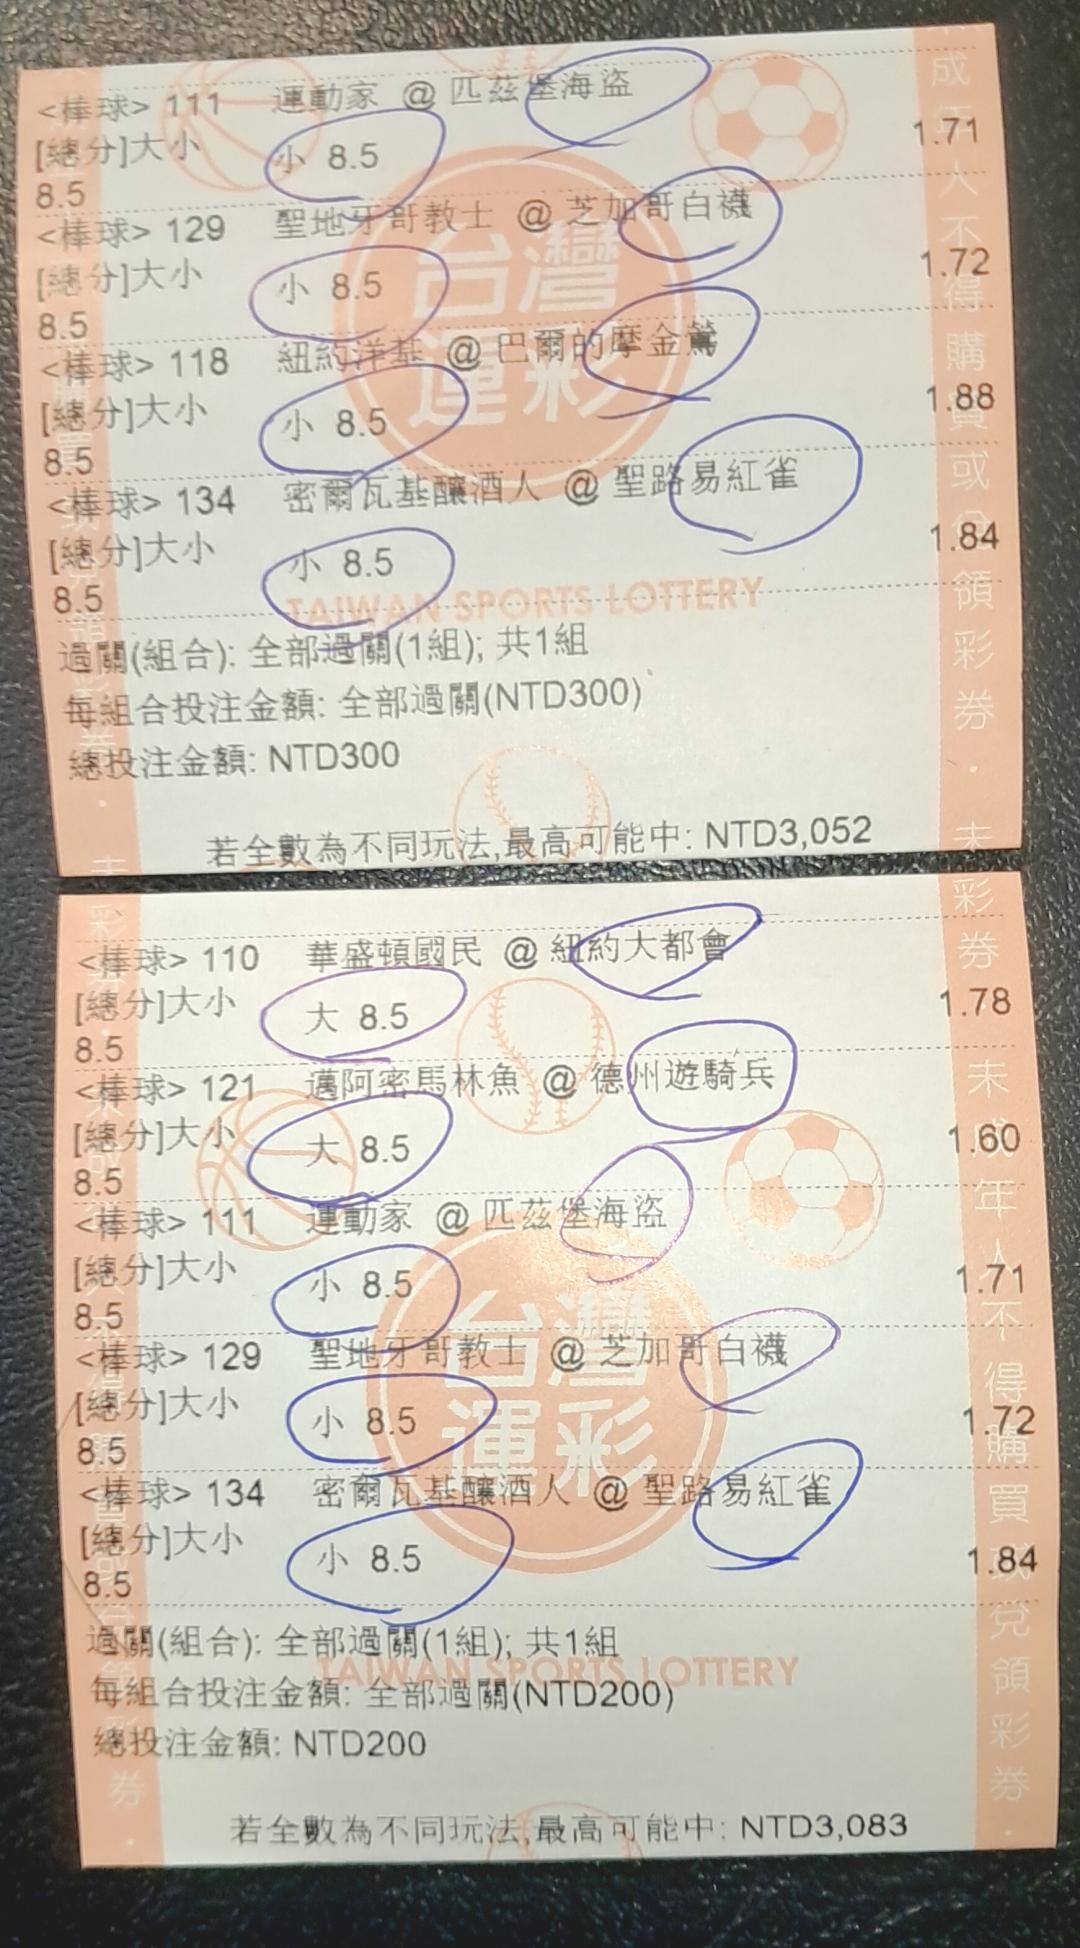 <棒球> 111 運動家 @ 匹茲堡海盜
[總分]大小 小 8.5 1.71
8.5
<棒球> 129 聖地牙哥教士 @ 芝加哥白襪
[總分]大小 小 8.5 1.72
8.5
<棒球> 118 紐約洋基 @ 巴爾的摩金鶯
[總分]大小 小 8.5 1.88
8.5
<棒球> 134 密爾瓦基釀酒人 @ 聖路易紅雀
[總分]大小 小 8.5 1.84
8.5
台灣
運彩
TAIWAN SPORTS LOTTERY
過關(組合): 全部過關(1組); 共1組
每組合投注金額: 全部過關(NTD300)
總投注金額: NTD300
若全數為不同玩法,最高可能中: NTD3,052
<棒球> 110 華盛頓國民 @ 紐約大都會
[總分]大小 大 8.5 1.78
8.5
<棒球> 121 邁阿密馬林魚 @ 德州遊騎兵
[總分]大小 大 8.5 1.60
8.5
<棒球> 111 運動家 @ 匹茲堡海盜
[總分]大小 小 8.5 1.71
8.5
<棒球> 129 聖地牙哥教士 @ 芝加哥白襪
[總分]大小 小 8.5 1.72
8.5
<棒球> 134 密爾瓦基釀酒人 @ 聖路易紅雀
[總分]大小 小 8.5 1.84
8.5
台灣
運彩
過關(組合): 全部過關(1組); 共1組
TAIWAN SPORTS LOTTERY
每組合投注金額: 全部過關(NTD200)
總投注金額: NTD200
若全數為不同玩法,最高可能中: NTD3,083